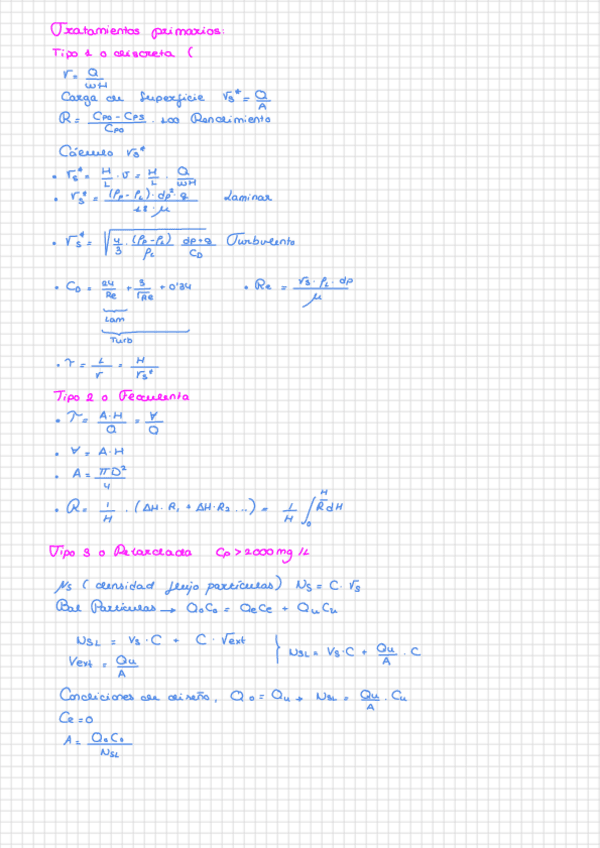 Tratamientos primarios:
Tipo 1 o discreta (
v = Q / WH
Carga de superficie Vs* = Q / A
R = (Cpo - Cps) / Cpo · 100 Rendimiento
Cálculo Vs*
• Vs* = H/L · v = H/L · Q/WH
• Vs* = (ρp - ρL) · dp² · g / 18 · μ Laminar
• Vs* = √(4/3 · (ρp - ρL)/ρL · dp · g/CD) Turbulento
• CD = 24/Re + 3/√Re + 0'34 • Re = Vs · ρL · dp / μ
Lam
Turb
• τ = L/v = H/Vs*
Tipo 2 o Feculenta
• τ = A·H / Q = V/Q
• V = A·H
• A = πD² / 4
• R = 1/H · (ΔH·R1 + ΔH·R2 ...) = 1/H ∫₀ᴴ R dH
Tipo 3 o Retardada Cp > 2000 mg/L
Ns (densidad flujo partículas) Ns = C · Vs
Bal Partículas → QoCo = QeCe + QuCu
NSL = Vs · C + C · Vext
Vext = Qu/A } NSL = Vs·C + Qu/A · C
Condiciones de diseño, Qo = Qu → NSL = Qu/A · Cu
Ce = 0
A = QoCo / NSL